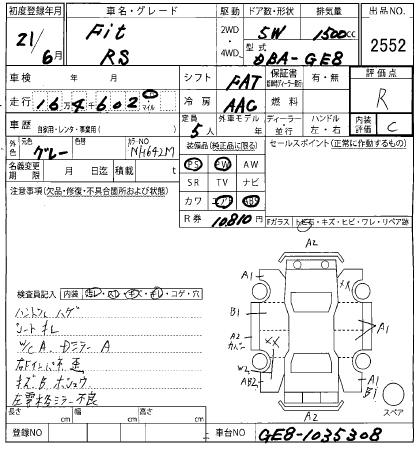 初度登録年月 車名・グレード 駆動 ドア数・形状 排気量 出品NO.
21/6月 Fit RS 2WD 4WD 5W 1500cc 2552
型式 DBA-GE8
車検 年 月 シフト FAT 保証書 有・無 評価点
走行 16万4千602 km マイル 冷房 AAC 燃料 R
車歴 自家用・レンタ・事業用( ) 定員 5人 外車モデル 年 ディーラー・並行 ハンドル 左・右 内装評価 C
外色 元色 グレー 色替 カラーNO NH642M 装備品(純正品に限る) セールスポイント(正常に作動するもの)
名義変更期限 月 日迄 積載 t PS PW AW
注意事項(欠品・修復・不具合箇所および状態) SR TV ナビ
カワ エアB ABS
R券 10810円 Fガラス トビ石・キズ・ヒビ・ワレ・リペア跡
A2
A1
B1
A2
A1
W2
AB2
A1
B1
A2
スペア
検査員記入 内装 ・コゲ・穴
ハンドル ハゲ
シート キレ
W/C A. Dミラー A
キズ B ホシュウ
左電格ミラー不良
長さ cm 幅 cm 高さ cm
登録NO 車台NO GE8-1035308